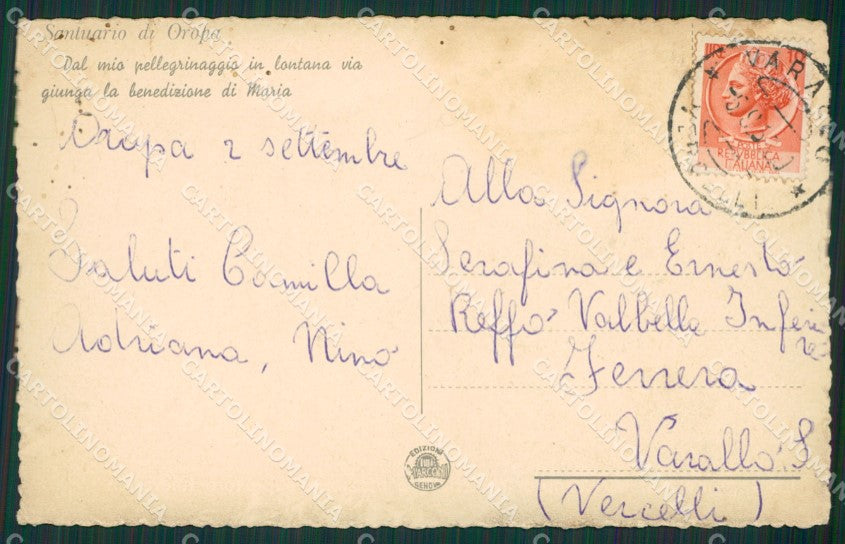 Santuario di Oropa
Dal mio pellegrinaggio in lontana via
giunga la benedizione di Maria
Oropa 2 settembre
Saluti Camilla
Adriana, Nino
Alla Signora
Serafina e Ernesto
Reffo Valbella Inferiore
Ferrera
Varallo S.
(Vercelli)
POSTE
REPVBBLICA
ITALIANA
EDIZIONI
GENOVA
CARTOLINOMANIA